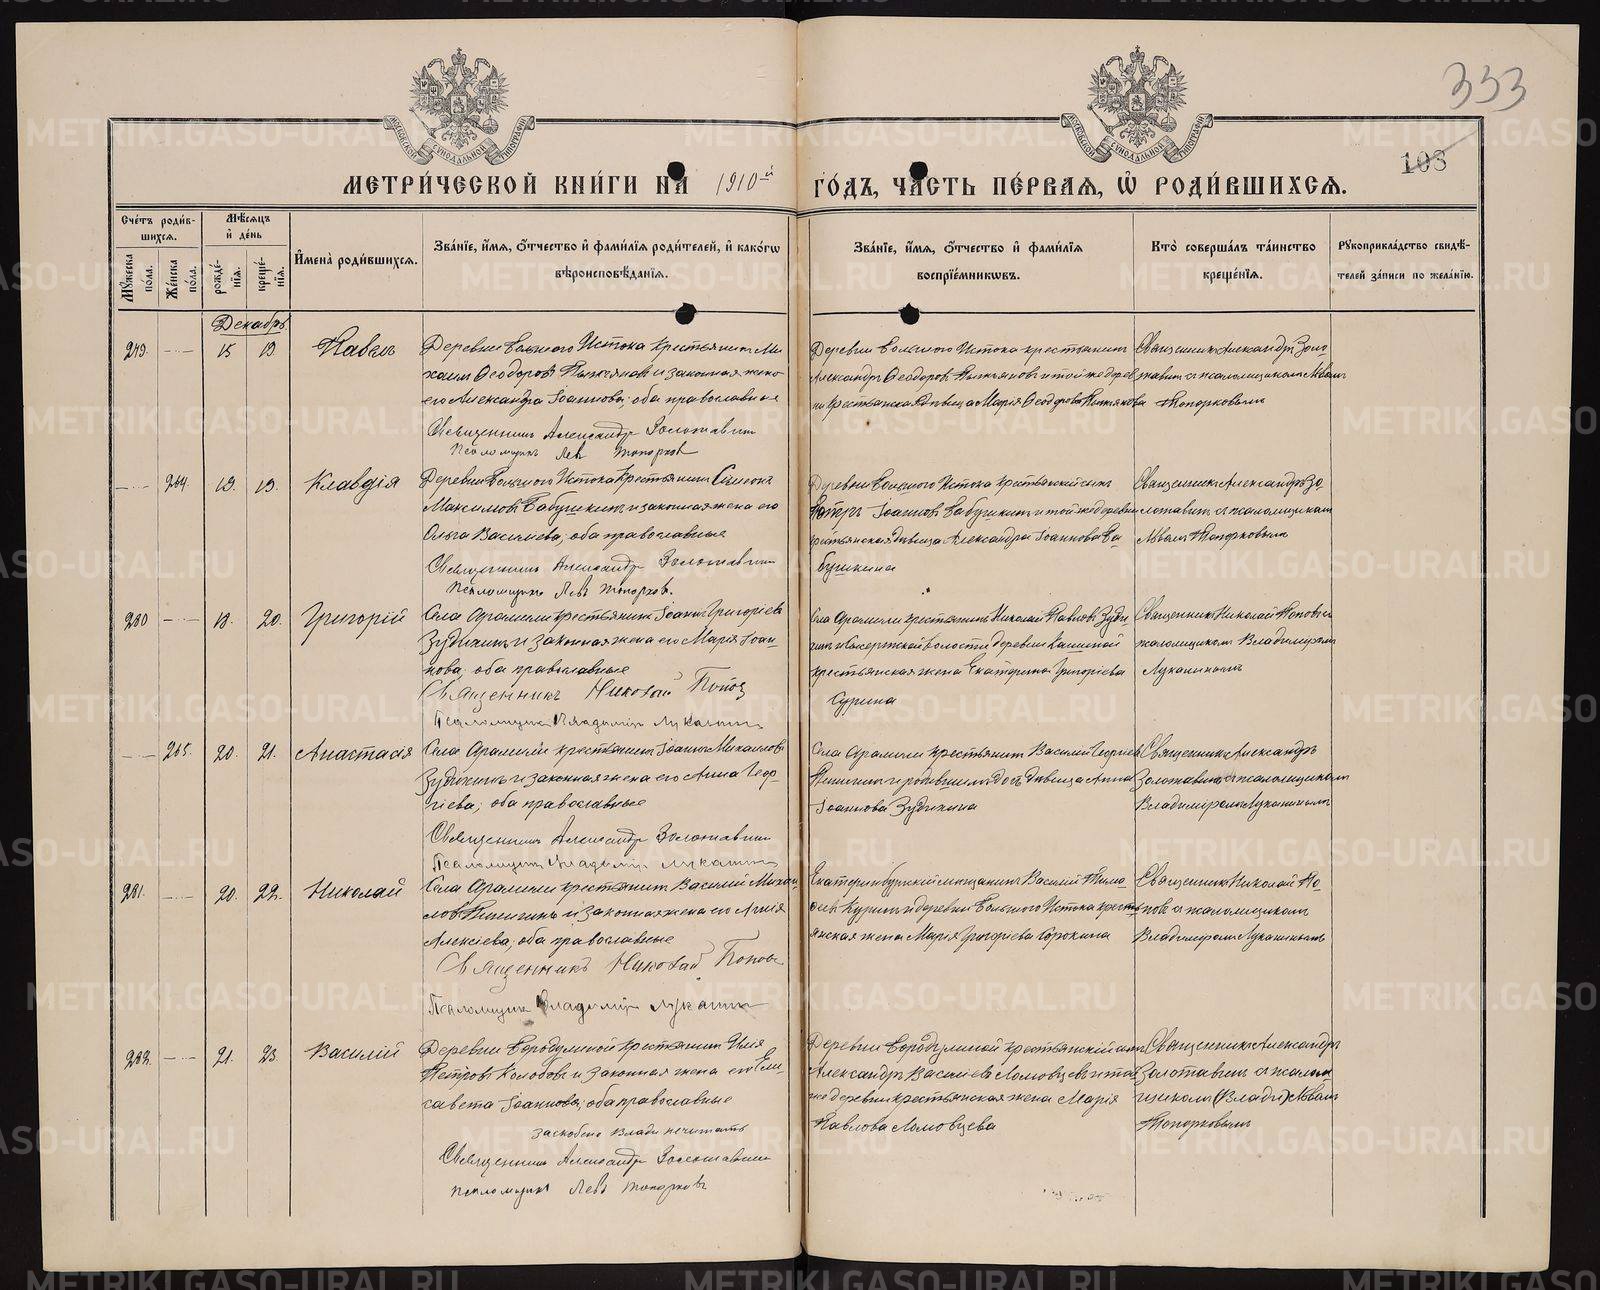 333
103
МОСКОВСКОЙ СѴНОДАЛЬНОЙ ТИПОГРАФІИ
МОСКОВСКОЙ СѴНОДАЛЬНОЙ ТИПОГРАФІИ
МЕТРИ́ЧЕСКОЙ КНИ́ГИ НА 1910-й ГО́ДЪ, ЧА́СТЬ ПЕ́РВАѦ, Ѡ҆ РОДИ́ВШИХСѦ.
Сче́тъ роди́в-
шихсѧ.
Мꙋ́жеска по́ла.
Же́нска по́ла.
Мѣ́сѧцъ
и҆ де́нь
рожде́-
нїѧ.
креще́-
нїѧ.
И҆мена̀ роди́вшихсѧ.
Зва́нїе, и҆́мѧ, ѻ҆́тчество и҆ фами́лїѧ роди́телей, и҆ како́гѡ
вѣроисповѣ́данїѧ.
Зва́нїе, и҆́мѧ, ѻ҆́тчество и҆ фами́лїѧ
воспрїе́мникѡвъ.
Кто̀ соверша́лъ та́инство
креще́нїѧ.
Рꙋкоприкла́дство свидѣ́-
телей за́писи по жела́нїю.
Декабрь
279. 15 19 Павелъ
Деревни Большого Истока крестьянинъ Ми-
хаилъ Ѳеодоровъ и законная жена
его Александра Іоаннова, оба православные
Священникъ Александръ Золотавинъ
Псаломщикъ Левъ Топорков
Деревни Большого Истока крестьянинъ
Александръ Ѳеодоровъ и той же дерев-
ни крестьянская дѣвица Марія Ѳеодорова
Священникъ Александръ Золо-
тавинъ съ псаломщикомъ Львомъ
Топорковымъ
264. 19. 19. Клавдія
Деревни Большого Истока крестьянинъ Сѵмеонъ
Максимовъ Бабушкинъ и законная жена его
Ольга Васильева, оба православные
Священникъ Александръ Золотавинъ
Псаломщикъ Левъ Топорков.
Деревни Большого Истока крестьянскій сынъ
Петръ Іоанновъ Бабушкинъ и той же деревни
крестьянская дѣвица Александра Іоаннова Ба-
бушкина
Священникъ Александръ Зо-
лотавинъ съ псаломщикомъ
Львомъ Топорковымъ
280 18. 20. Григорій
Села Арамили крестьянинъ Іоаннъ Григорьевъ
Зудихинъ и законная жена его Марія Іоан-
нова, оба православные
Священникъ Николай Поповъ
Псаломщикъ Владимір Лукашин
Села Арамили крестьянинъ Николай Павловъ Зуди-
хинъ и Сысертской волости деревни Кашиной
крестьянская жена Екатерина Григоріева
Сурина
Священникъ Николай Поповъ съ
псаломщикомъ Владимиромъ
Лукашинымъ
265. 20. 21. Анастасія
Села Арамили крестьянинъ Іоаннъ Михаиловъ
Зудихинъ и законная жена его Анна Геор-
гіева; оба православные
Священникъ Александръ Золотавинъ
Псаломщикъ Владимір Лукашин
Села Арамили крестьянинъ Василій Георгіевъ
дѣвица Анна
Іоаннова Зудихина
Священникъ Александръ
Золотавинъ съ псаломщикомъ
Владиміромъ Лукашинымъ
281. 20. 22. Николай
Села Арамили крестьянинъ Василій Михаи-
ловъ и законная жена его
Алексіева, оба православные
Священникъ Николай Поповъ
Псаломщик Владимір Лукашин
Екатеринбургскій мѣщанинъ Василій Тимо-
ѳеевъ Куринъ и деревни Большого Истока кресть-
янская жена Марія Григоріева Сорокина
Священникъ Николай По-
повъ съ псаломщикомъ
Владимиромъ Лукашинымъ
282. 21. 23. Василій
Деревни Бородулиной крестьянинъ Илія
Петровъ Колобовъ и законная жена его Ели-
савета Іоаннова, оба православные
заскоблено Влади нечитать
Священникъ Александръ Золотавинъ
псаломщикъ Левъ Топорковъ
Деревни Бородулиной крестьянскій сынъ
Александръ Васильевъ Ломовцевъ и той
же деревни крестьянская жена Марія
Павлова Ломовцева
Священникъ Александръ
Золотавинъ съ псалом-
щикомъ (Влади) Львомъ
Топорковымъ
METRIKI.GASO-URAL.RU